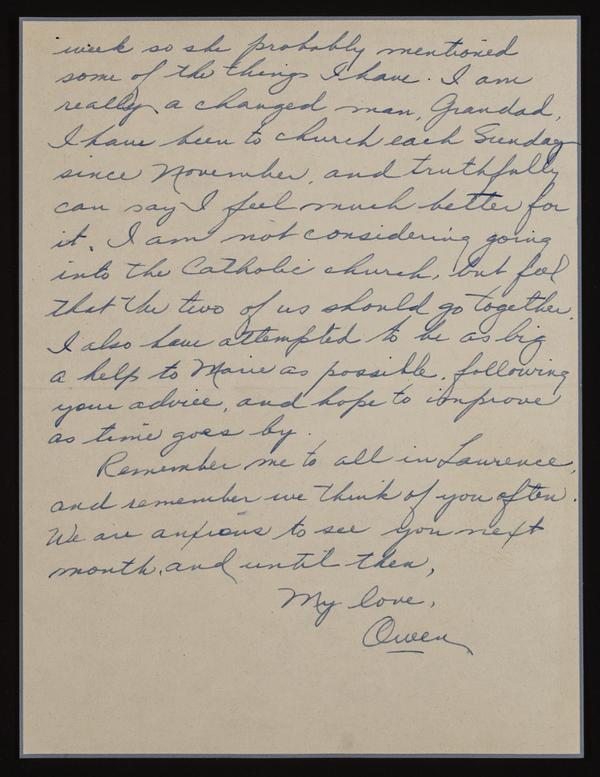 week so she probably mentioned
some of the things I have. I am
really a changed man, Grandad,
I have been to church each Sunday
since November, and truthfully
can say I feel much better for
it. I am not considering going
into the Catholic church, but feel
that the two of us should go together.
I also have attempted to be as big
a help to Marie as possible, following
your advice, and hope to improve
as time goes by.
Remember me to all in Laurence,
and remember we think of you often.
We are anxious to see you next
month, and until then,
My love,
Owen